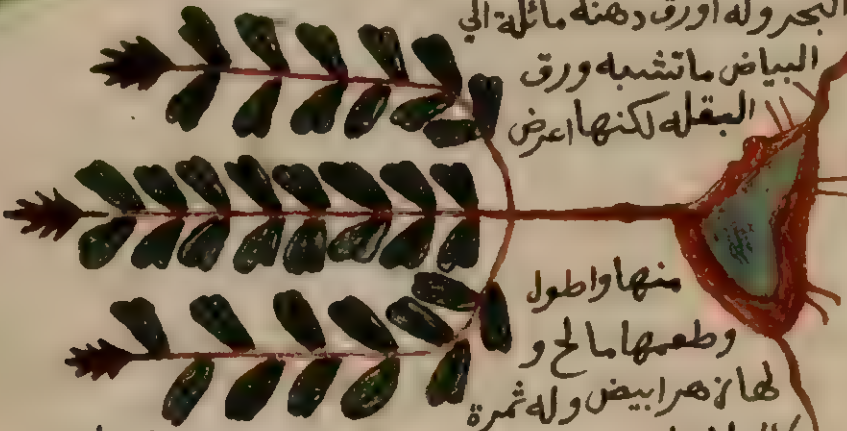 البحر وله اورق دهنة مائلة الي
البياض ما تشبه ورق
البقله لكنها اعرض
منها واطول
وطعمها مالح و
لها زهر ابيض وله ثمرة